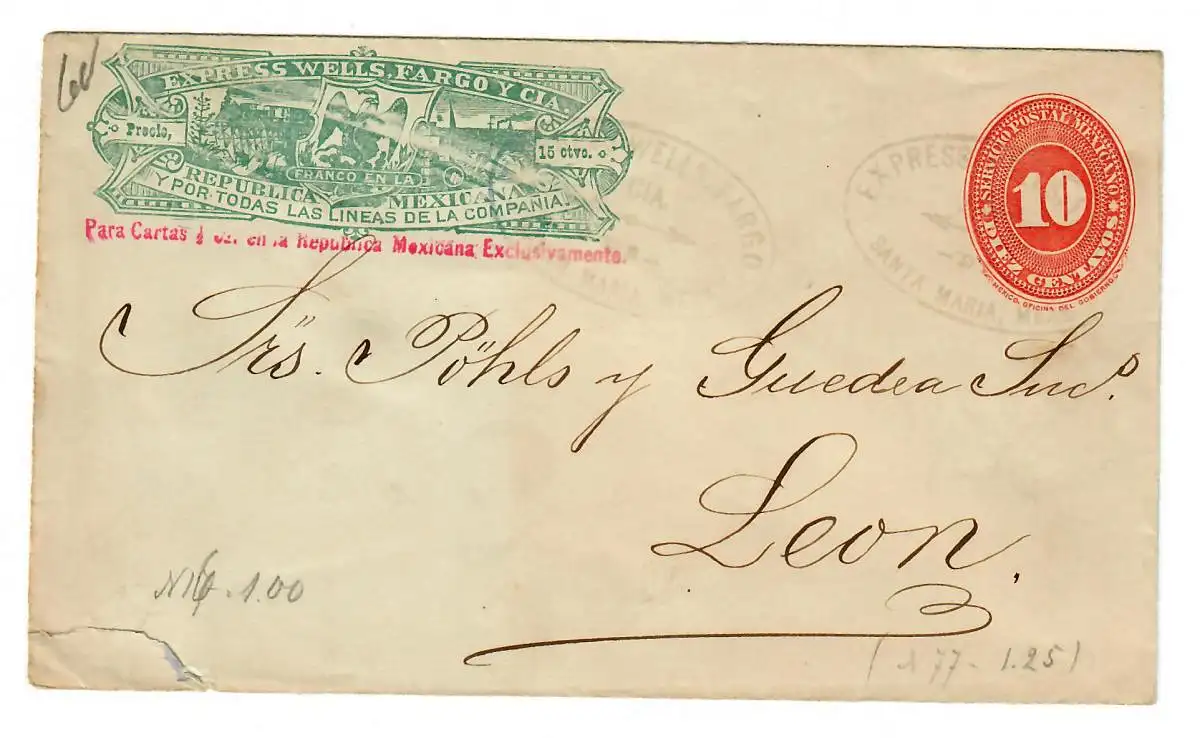 EXPRESS WELLS, FARGO Y CIA.
Precio,
15 ctvo.
FRANCO EN LA
REPUBLICA MEXICANA
Y POR TODAS LAS LINEAS DE LA COMPAÑIA.
Para Cartas ½ oz. en la Republica Mexicana Exclusivamente.
WELLS, FARGO
CIA.
MARIA
EXPRESS
SANTA MARIA,
SERVICIO POSTAL MEXICANO
10
DIEZ CENTAVOS
MEXICO. OFICINA DEL GOBIERNO
Srs. Pöhls y Guedea Sucs.
Leon.
1.00
77 - 1.25)